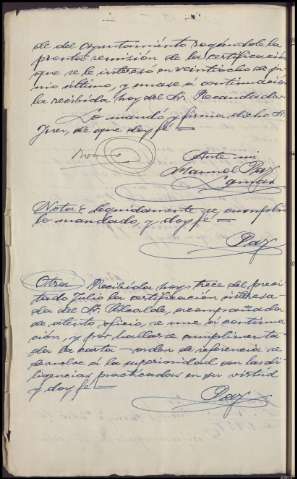 de del Ayuntamiento rogándole la
pronta remisión de la certificación
que se le interesó en veintiocho de ju-
nio último, y unase á continuación
la recibida hoy del Sr. Recaudador.
Lo mandó y firma dicho Sr.
Juez, de que doy fé =
Ante mi
Manuel Paz
Nota = Seguidamente se cumplió
lo mandado, y doy fé =
Paz
Otra = Recibida hoy, trece del preci-
tado Julio la certificación interesa-
da del Sr. Alcalde, acompañada
de atento oficio, se une á continua-
ción, y por hallarse cumplimenta-
da la carta-orden de referencia se
devuelve á la superioridad con las di-
ligencias practicadas en su virtud
y doy fé =
Paz